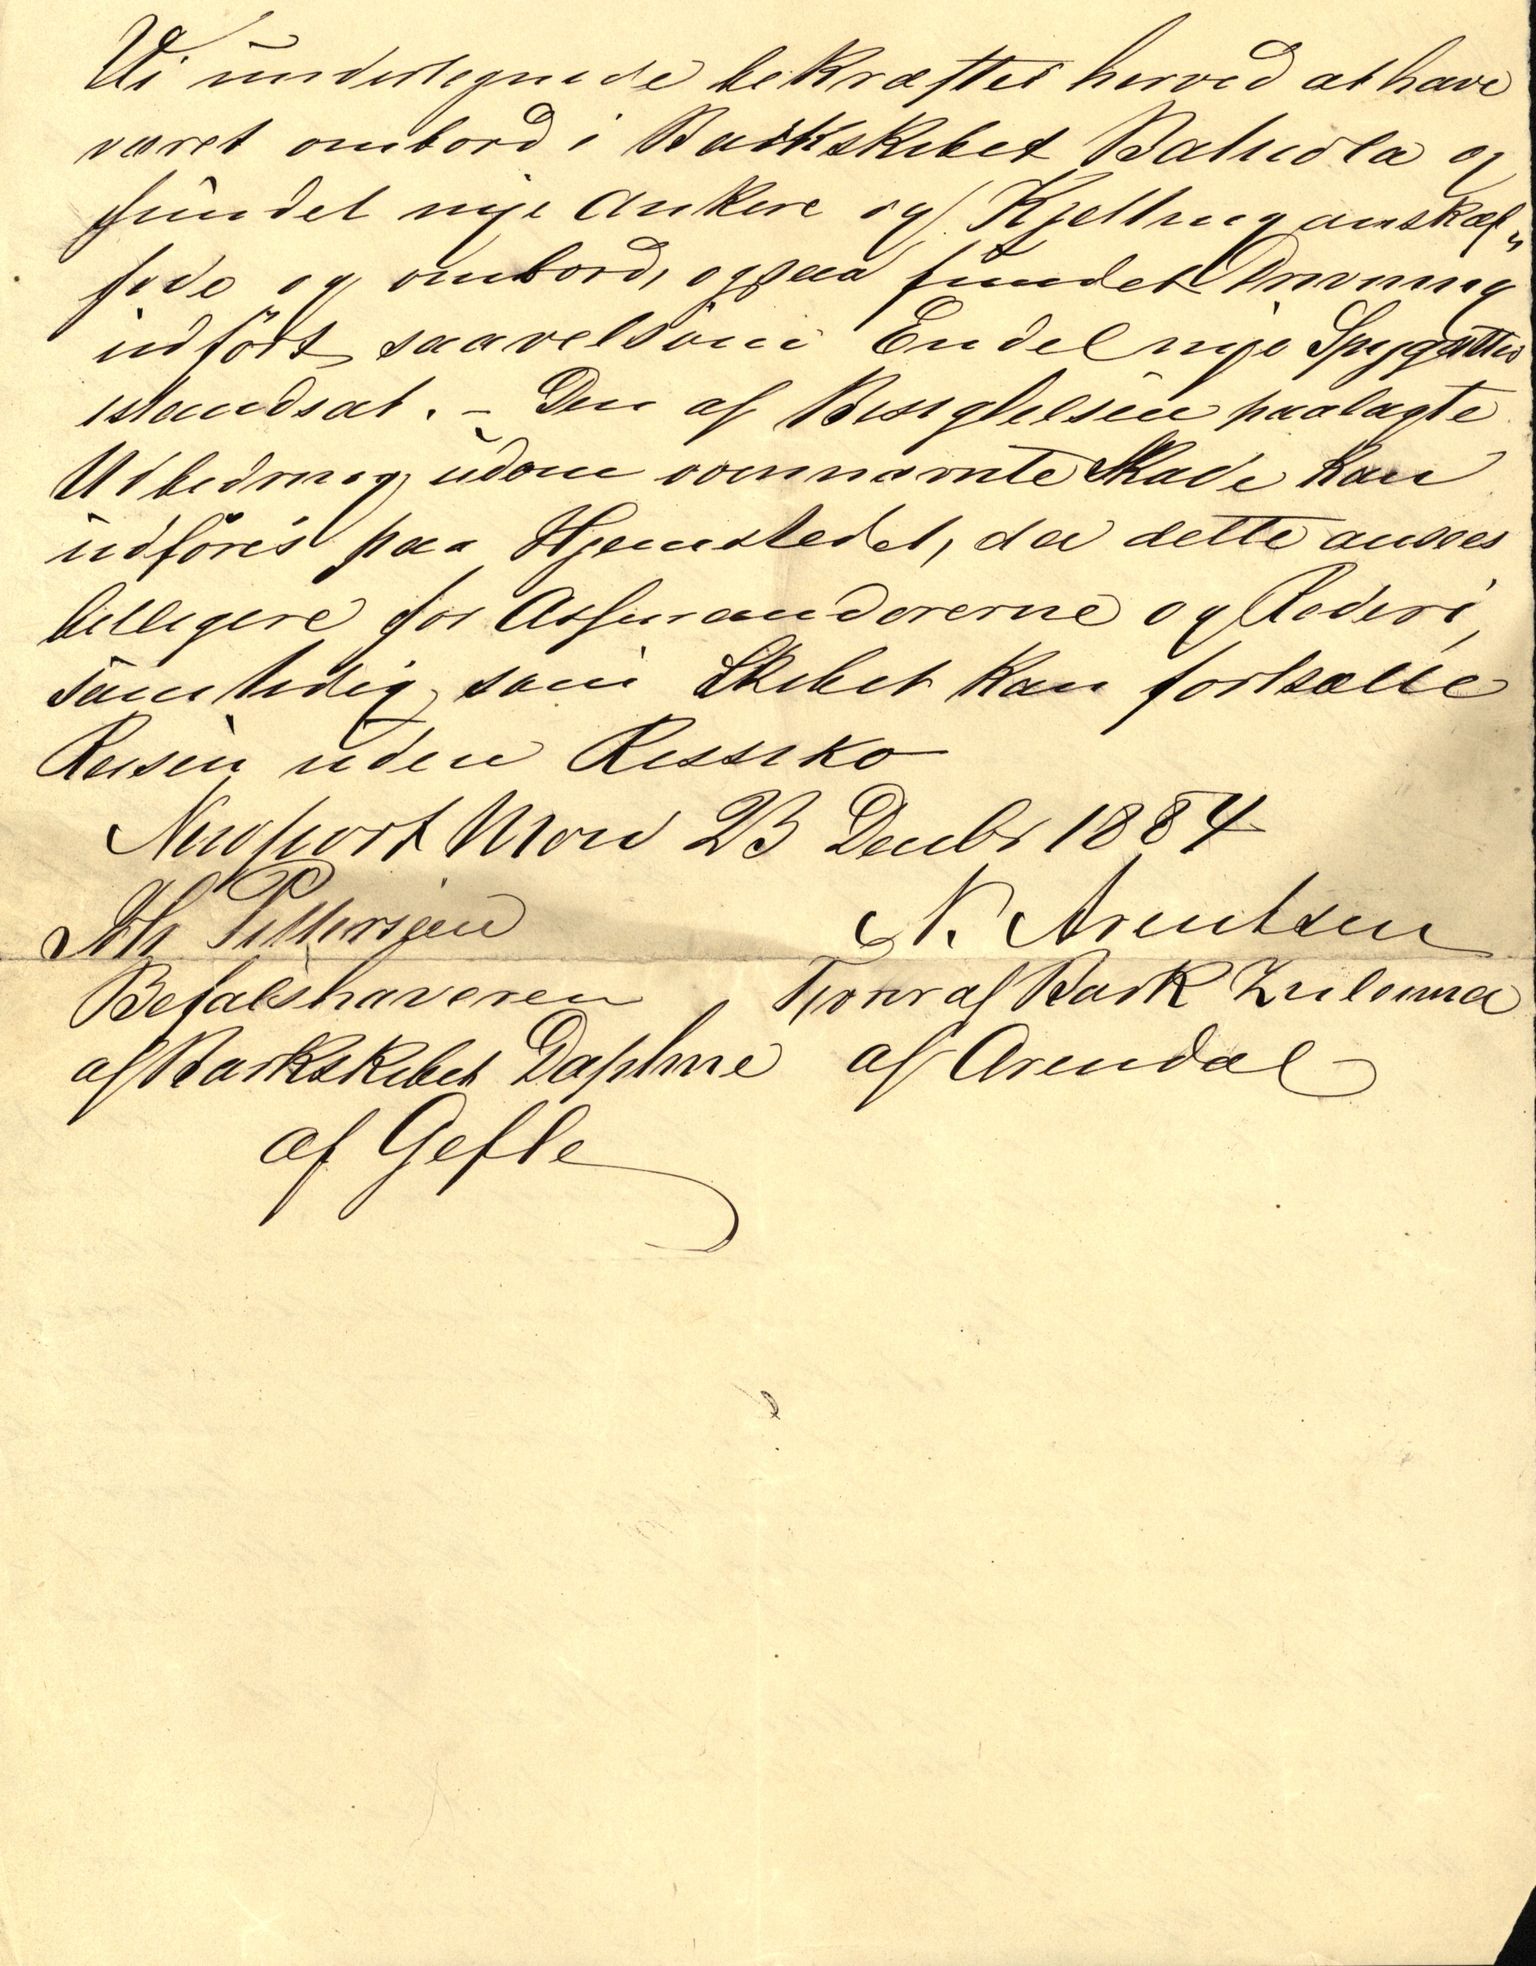 Vi undertegnede bekræfter herved at have
været ombord i Barkskibet Batavia og
fundet nye Ankere og Kjetting anskaf„
fede og ombord, ogsaa fundet Drivning
udført, saavelsom Endel nye Spygatter
istandsat. – Den af Besigtelsen paalagte
Udbedring, udom ovennævnte Skade kan
udføres paa Hjemstedet, da dette ansees
billigere for Assurandorerne og Rederi,
samtidig som Skibet kan fortsætte
Reisen uden Ressiko
Newport Mon 23 Decbr 1884
Joh Pettersjen N. Arentsen
Befalshaveren Fører af Bark Zulema
af Barkskibet Daphne af Arendal
af Gefle